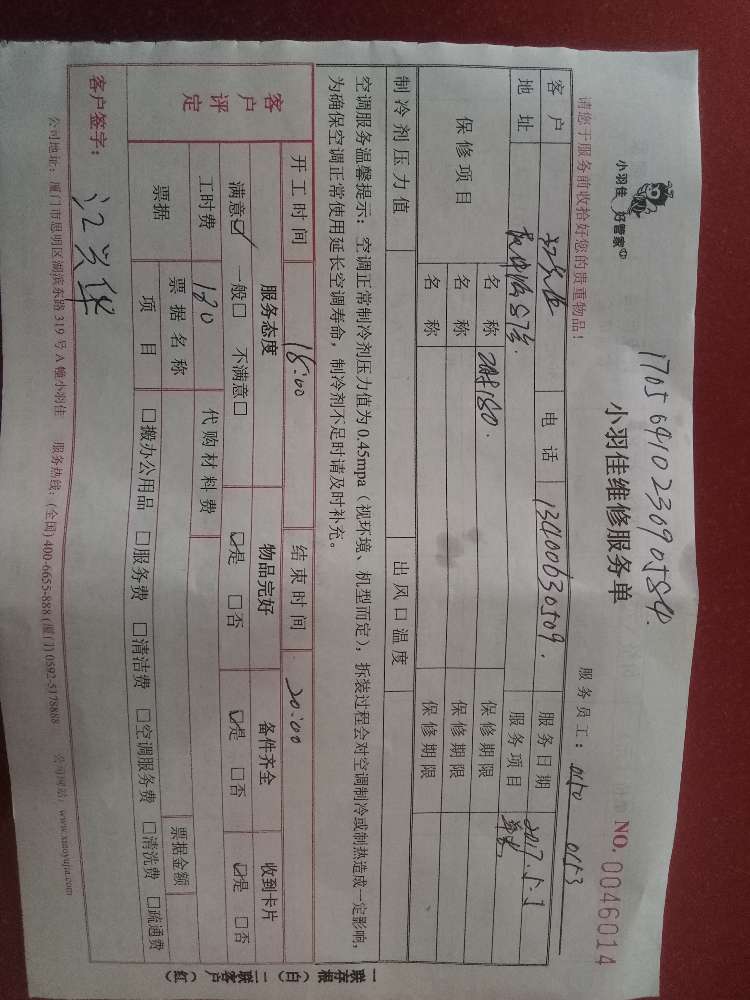 小羽佳 好管家
1705641023090584
小羽佳维修服务单
NO. 0046014
请您于服务前收拾好您的贵重物品!
服务员工: 0153
客户 电话 13400630509. 服务日期 2017.5.1
地址 服务项目
保修项目 名称 180. 保修期限
名称 保修期限
名称 保修期限
制冷剂压力值 出风口温度
空调服务温馨提示:空调正常制冷剂压力值为0.45mpa(视环境、机型而定),拆装过程会对空调制冷或制热造成一定影响,
为确保空调正常使用延长空调寿命,制冷剂不足时请及时补充。
客户评定 开工时间 18:00 结束时间 20:00
服务态度 物品完好 备件齐全 收到卡片
满意☑ 一般□ 不满意□ ☑是 □否 ☑是 □否 ☑是 □否
工时费 180 代购材料费
票据 票据名称 票据金额
项目 □搬办公用品 □服务费 □清洁费 □空调服务费 □清洗费 □疏通费
客户签字: 江兴华
公司地址:厦门市思明区湖滨东路319号A幢小羽佳 服务热线:(全国)400-6655-888 (厦门)0592-5178888 公司网站:www.xiaoyujia.com
一联存根(白) 二联客户(红)